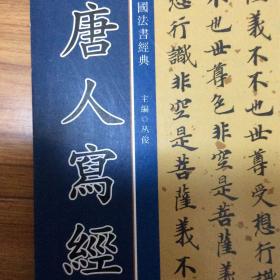 義不不也世尊受想行
不也世尊色非空是菩薩義
想行識非空是菩薩義不
國法書經典
主編◎丛俊
唐人寫經